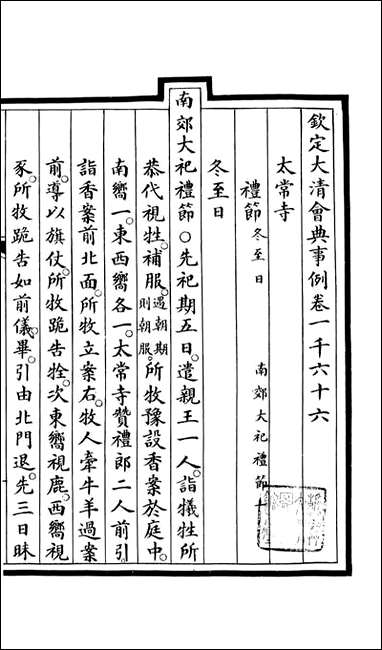 欽定大清會典事例卷一千六十六
太常寺
禮節冬至日 南郊大祀禮節
冬至日
南郊大祀禮節○先祀期五日遣親王一人詣犧牲所
恭代視牲補服遇朝期則朝服所牧豫設香案於庭中
南嚮一東西嚮各一太常寺贊禮郎二人前引
詣香案前北面所牧立案右牧人牽牛羊過案
前導以旗仗所牧跪告牷次東嚮視鹿西嚮視
豕所牧跪告如前儀畢引由北門退先三日昧